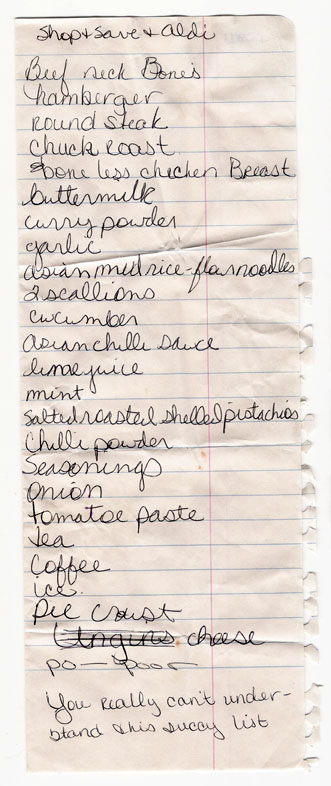 Shop + Save + aldi
Beef neck Bones
hamberger
round steak
chuck roast
boneless chicken Breast
buttermilk
curry powder
garlic
asian med rice-flour noodles
2 scallions
cucumber
asian chilli sauce
lime juice
mint
salted roasted shelled pistachios
Chilli powder
Seasonings
onion
tomatoe paste
tea
Coffee
ice
Pie Crust
cheese
po — poor
You really can't under-
stand this succy list